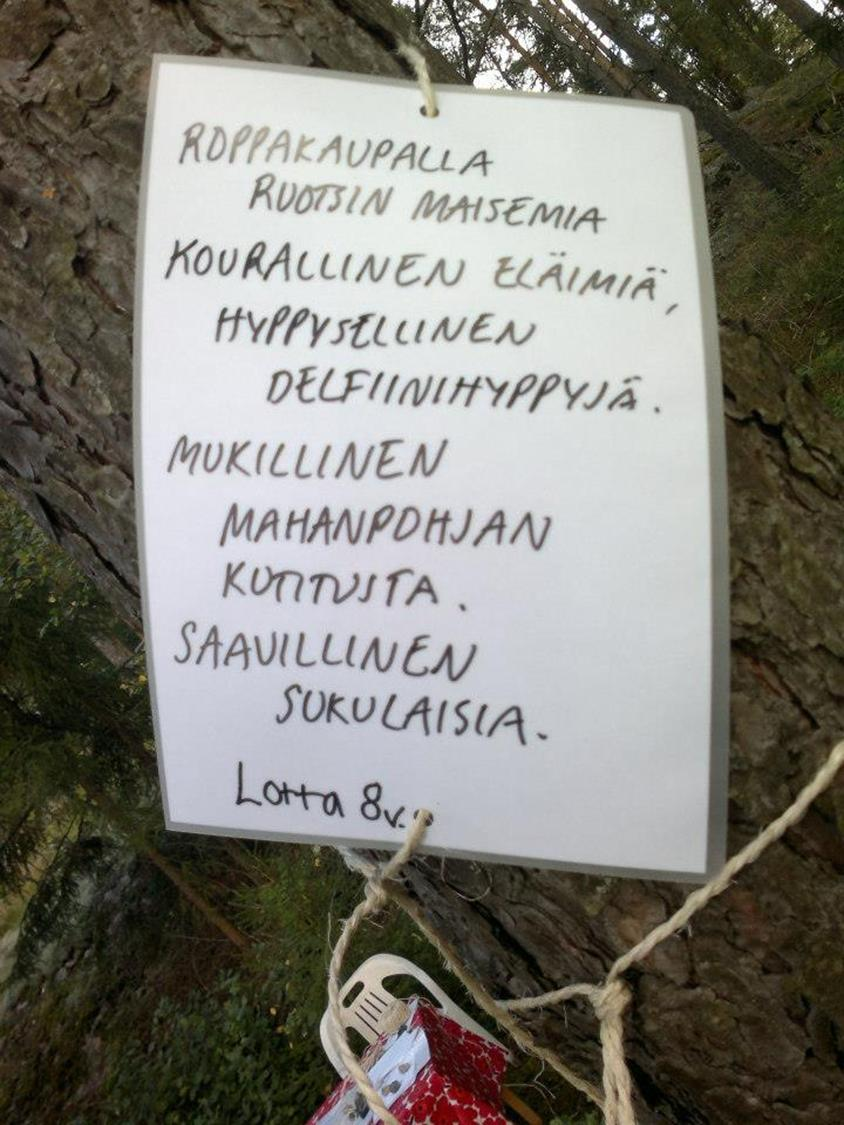 ROPPAKAUPALLA
RUOTSIN MAISEMIA
KOURALLINEN ELÄIMIÄ,
HYPPYSELLINEN
DELFIINIHYPPYJÄ.
MUKILLINEN
MAHANPOHJAN
KUTITUSTA.
SAAVILLINEN
SUKULAISIA.
Lotta 8v.